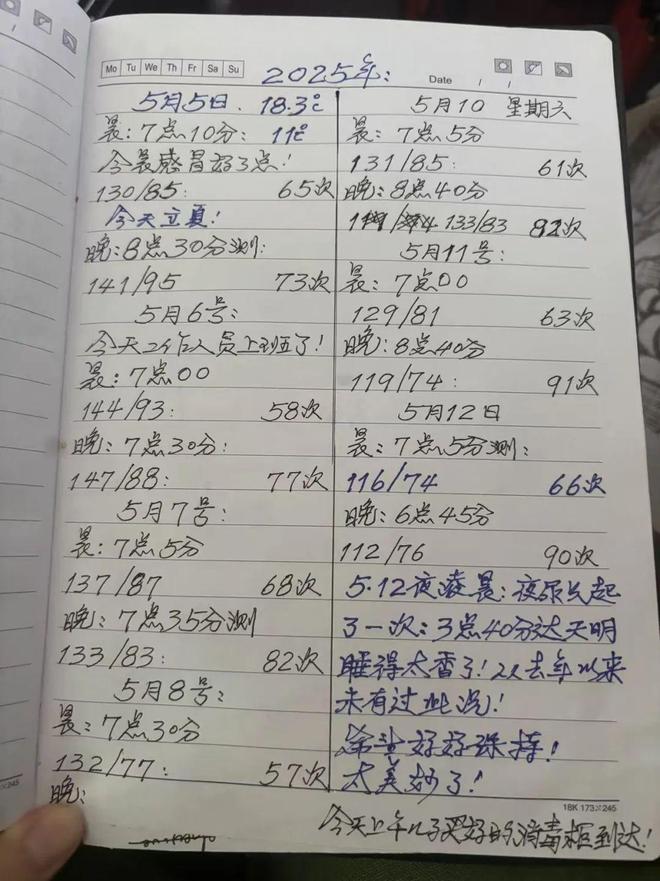 Mo Tu We Th Fr Sa Su
2025年:
Date / /
5月5日. 18.3℃
晨:7点10分: 11℃
今晨感冒好了点!
130/85: 65次
今天立夏!
晚:8点30分测:
141/95 73次
5月6号:
今天工作人员上班了!
晨:7点00
144/93: 58次
晚:7点30分:
147/88: 77次
5月7号:
晨:7点5分
137/87 68次
晚:7点35分测
133/83: 82次
5月8号:
晨:7点30分
132/77: 57次
晚:
5月10 星期六
晨:7点5分
131/85: 61次
晚:8点40分
133/83 82次
5月11号:
晨:7点00
129/81 63次
晚:8点40分
119/74: 91次
5月12日
晨:7点5分测:
116/74 66次
晚:6点45分
112/76 90次
5.12夜凌晨:夜尿只起
了一次:3点40分达天明
睡得太香了!从去年以来
未有过此况!
好好保持!
太美妙了!
18K 173×245
今天上午儿子买好的消毒柜到达!